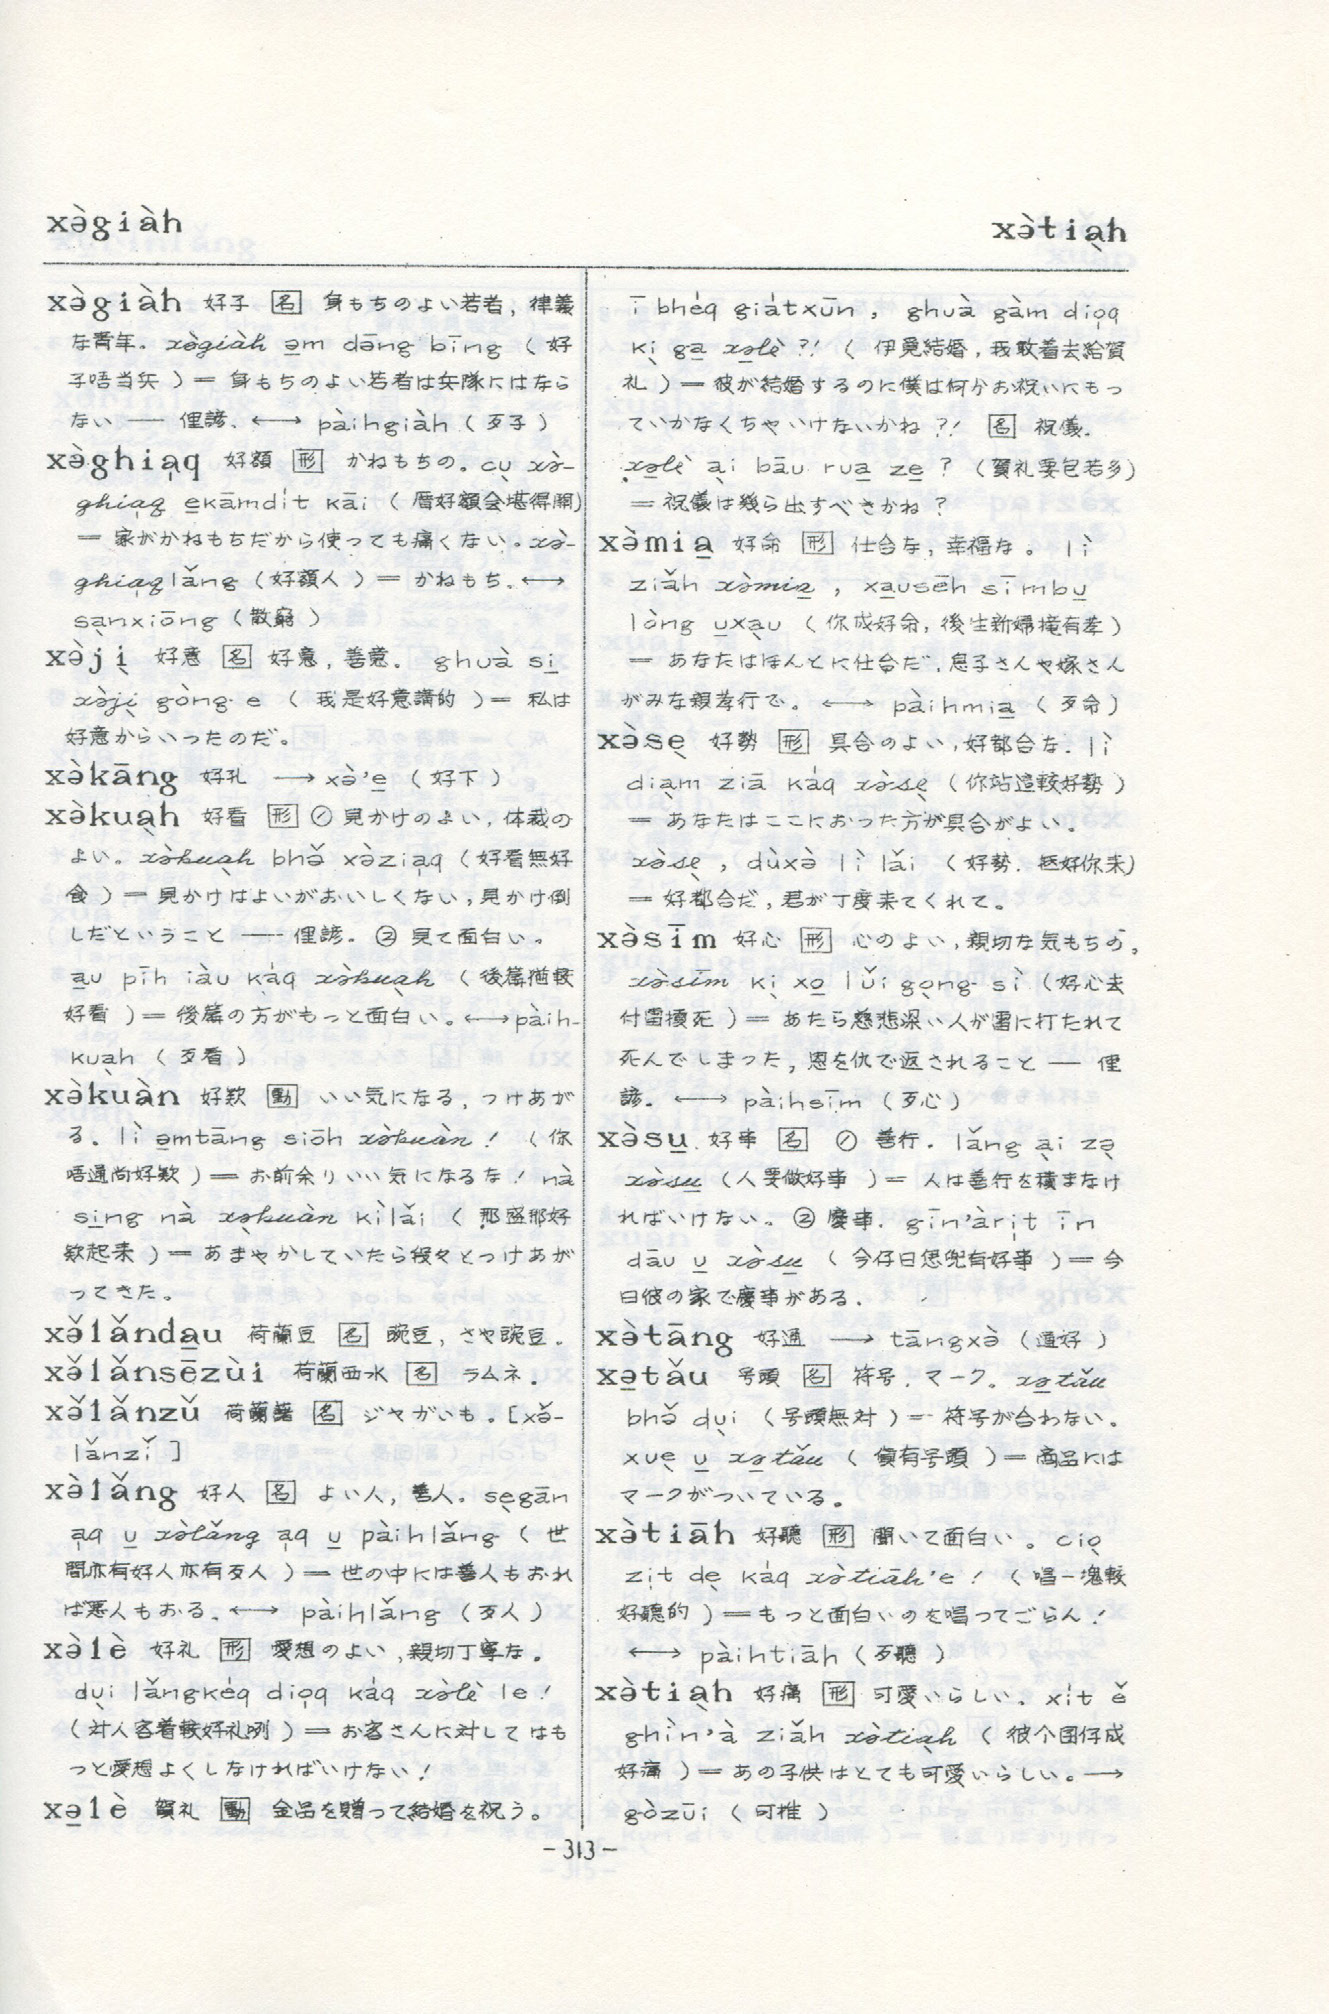 xə̀giàh
xə̀tiạh
xə̀giàh 好子 [名] 身もちのよい若者, 律義
な青年. xə̀giàh ə̱m dāng bīng ( 好
子唔当兵 ) = 身もちのよい若者は兵隊にはなら
ない ── 俚諺. ←→ pàihgiàh ( 歹子 )
xə̀ghiạq 好額 [形] かねもちの。cụ xə̀-
ghiạq e̱kāmdi̍t kāi ( 厝好額会堪得開)
= 家がかねもちだから使っても痛くない。xə̀-
ghiạqlǎng (好額人 ) = かねもち. ←→
sạnxiōng (散窮 )
xə̀jị 好意 [名] 好意, 善意. ghuà si̱
xə̀jị gòng e ( 我是好意講的 ) = 私は
好意からいったのだ。
xə̀kāng 好孔 ─→ xə̀'e̱ ( 好下 )
xə̀kuạh 好看 [形] ① 見かけのよい, 体裁の
よい。xə̀kuạh bhə̌ xə̀ziạq (好看無好
食 ) = 見かけはよいがおいしくない, 見かけ倒
しだということ ── 俚諺. ② 見て面白い。
a̱u pīh iàu ka̍q xə̀kuạh ( 後篇猶較
好看 ) = 後篇の方がもっと面白い。←→pàih-
kuạh ( 歹看 )
xə̀kuàn 好款 [動] いい気になる, つけあが
る。lì ə̱mtāng siōh xə̀kuàn ! ( 你
唔通尚好款 ) = お前余りいい気になるな! nà
si̱ng nà xə̀kuàn kìlǎi ( 那盛那好
款起来 ) = あまやかしていたら段々とつけあが
ってきた。
xə̌lǎnda̱u 荷蘭豆 [名] 豌豆, さや豌豆.
xə̌lǎnsēzùi 荷蘭西水 [名] ラムネ.
xə̌lǎnzǔ 荷蘭薯 [名] ジャがいも。[xə̌-
lǎnzǐ ]
xə̀lǎng 好人 [名] よい人, 善人. sẹgān
ạq u̱ xə̀lǎng ạq u̱ pàihlǎng ( 世
間亦有好人亦有歹人 ) = 世の中には善人もおれ
ば悪人もおる. ←→ pàihlǎng ( 歹人 )
xə̀lè 好礼 [形] 愛想のよい, 親切丁寧な.
dụi lǎngke̍q diọq ka̍q xə̀lè le !
(対人客着較好礼咧 ) = お客さんに対してはも
っと愛想よくしなければいけない!
xə̱lè 賀礼 [動] 金品を贈って結婚を祝う。
ī bhe̍q gia̍txūn , ghuà gàm diọq
kị ga̱ xə̱lè ?! ( 伊覔結婚, 我敢着去給賀
礼 ) = 彼が結婚するのに僕は何分お祝いにもっ
ていかなくちゃいけないかね ?! [名] 祝儀.
xə̱lè ại bāu rua̱ ze̱ ? (賀礼要包若多)
= 祝儀は幾ら出すべきかね ?
xə̀mia̱ 好命 [形] 仕合な, 幸福な。lì
ziǎh xə̀mia̱ , xa̱usēh sīmbu̱
lòng u̱xạu ( 你成好命, 後生新婦攏有孝 )
= あなたはほんとに仕合だ, 息子さんや嫁さん
がみな親孝行で。←→ pàihmia̱ ( 歹命 )
xə̀sẹ 好勢 [形] 具合のよい, 好都合な. lì
diạm ziā ka̍q xə̀sẹ (你站這較好勢 )
= あなたはここにおった方が具合がよい。
xə̀sẹ , dùxə̀ lì lǎi ( 好勢. 抵好你来)
= 好都合だ, 君が丁度来てくれて。
xə̀sīm 好心 [形] 心のよい, 親切な気もちの。
xə̀sīm kị xo̱ lǔi gọng sì (好心去
付雷摃死 ) = あたら慈悲深い人が雷に打たれて
死んでしまった, 恩を仇で返されること ── 俚
諺. ←→ pàihsīm ( 歹心 )
xə̀su̱ 好事 [名] ① 善行. lǎng ại zə̣
xə̀su̱ (人要做好事 ) = 人は善行を積まなけ
ればいけない。② 慶事. gīn'àrịt īn
dāu u̱ xə̀su̱ ( 今仔日恁兜有好事 ) = 今
日彼の家で慶事がある.
xə̀tāng 好通 ─→ tāngxə̀ (通好 )
xə̱tǎu 号頭 [名] 符号. マーク。xə̱tǎu
bhə̌ dụi (号頭無対 ) = 符号が合わない。
xuẹ u̱ xə̱tǎu ( 貨有号頭 ) = 商品には
マークがついている。
xə̀tiāh 好聴 [形] 聞いて面白い。ciọ
zịt dẹ ka̍q xə̀tiāh'e ! ( 唱一塊較
好聴的 ) = もっと面白いのを唱ってごらん!
←→ pàihtiāh ( 歹聴 )
xə̀tiạh 好痛 [形] 可愛いらしい。xi̍t ě
ghìn'à ziǎh xə̀tiạh ( 彼个囝仔成
好痛 ) = あの子供はとても可愛いらしい。─→
gòzūi ( 可推 )
- 313 -